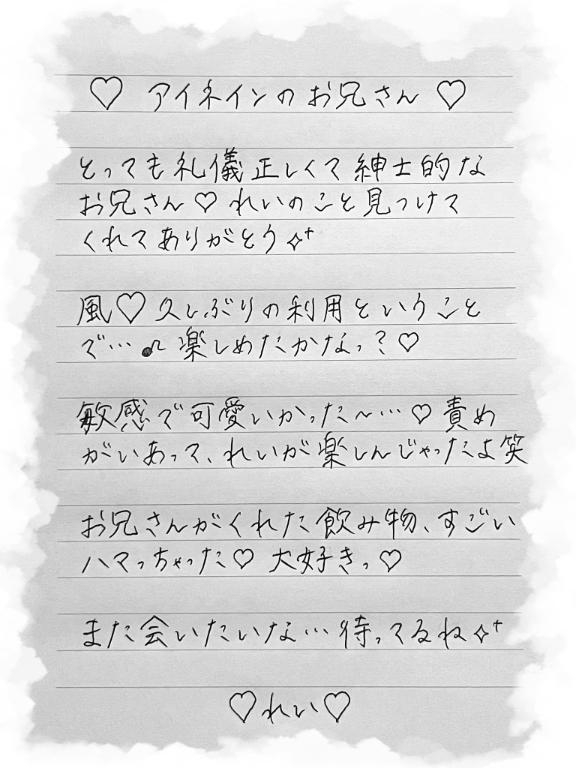 ♡ アイネインのお兄さん ♡
とっても礼儀正しくて紳士的な
お兄さん♡ れいのこと見つけて
くれてありがとう✧⁺
風♡ 久しぶりの利用ということ
で…♫ 楽しめたかなっ？♡
敏感で可愛いかった〜…♡ 責め
がいあって、れいが楽しんじゃったよ笑
お兄さんがくれた飲み物、すごい
ハマっちゃった♡ 大好きっ♡
また会いたいな…待ってるね✧⁺
♡れい♡